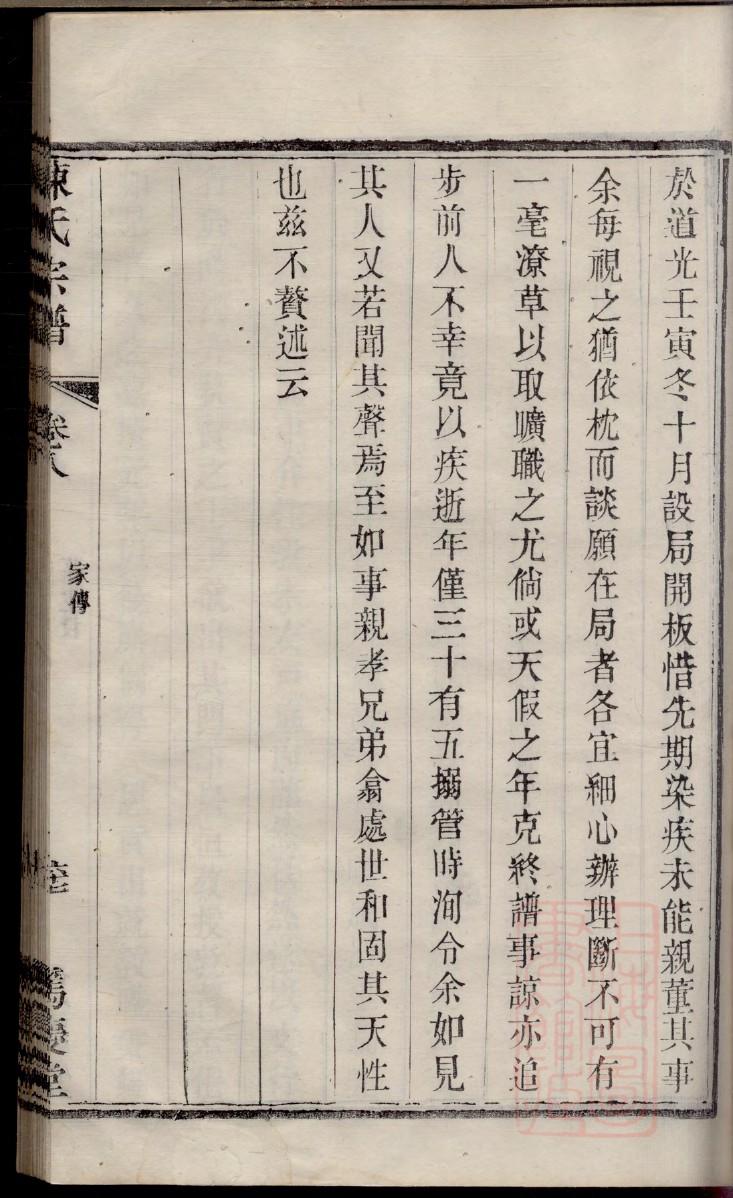 於道光壬寅冬十月設局開板惜先期染疾未能親董其事
余每視之猶依枕而談願在局者各宜細心辦理斷不可有
一毫潦草以取曠職之尤倘或天假之年克終譜事諒亦追
步前人不幸竟以疾逝年僅三十有五搦管時洵令余如見
其人又若聞其聲焉至如事親孝兄弟翕處世和固其天性
也茲不贅述云
陳氏宗譜
卷八
家傳
篤慶堂